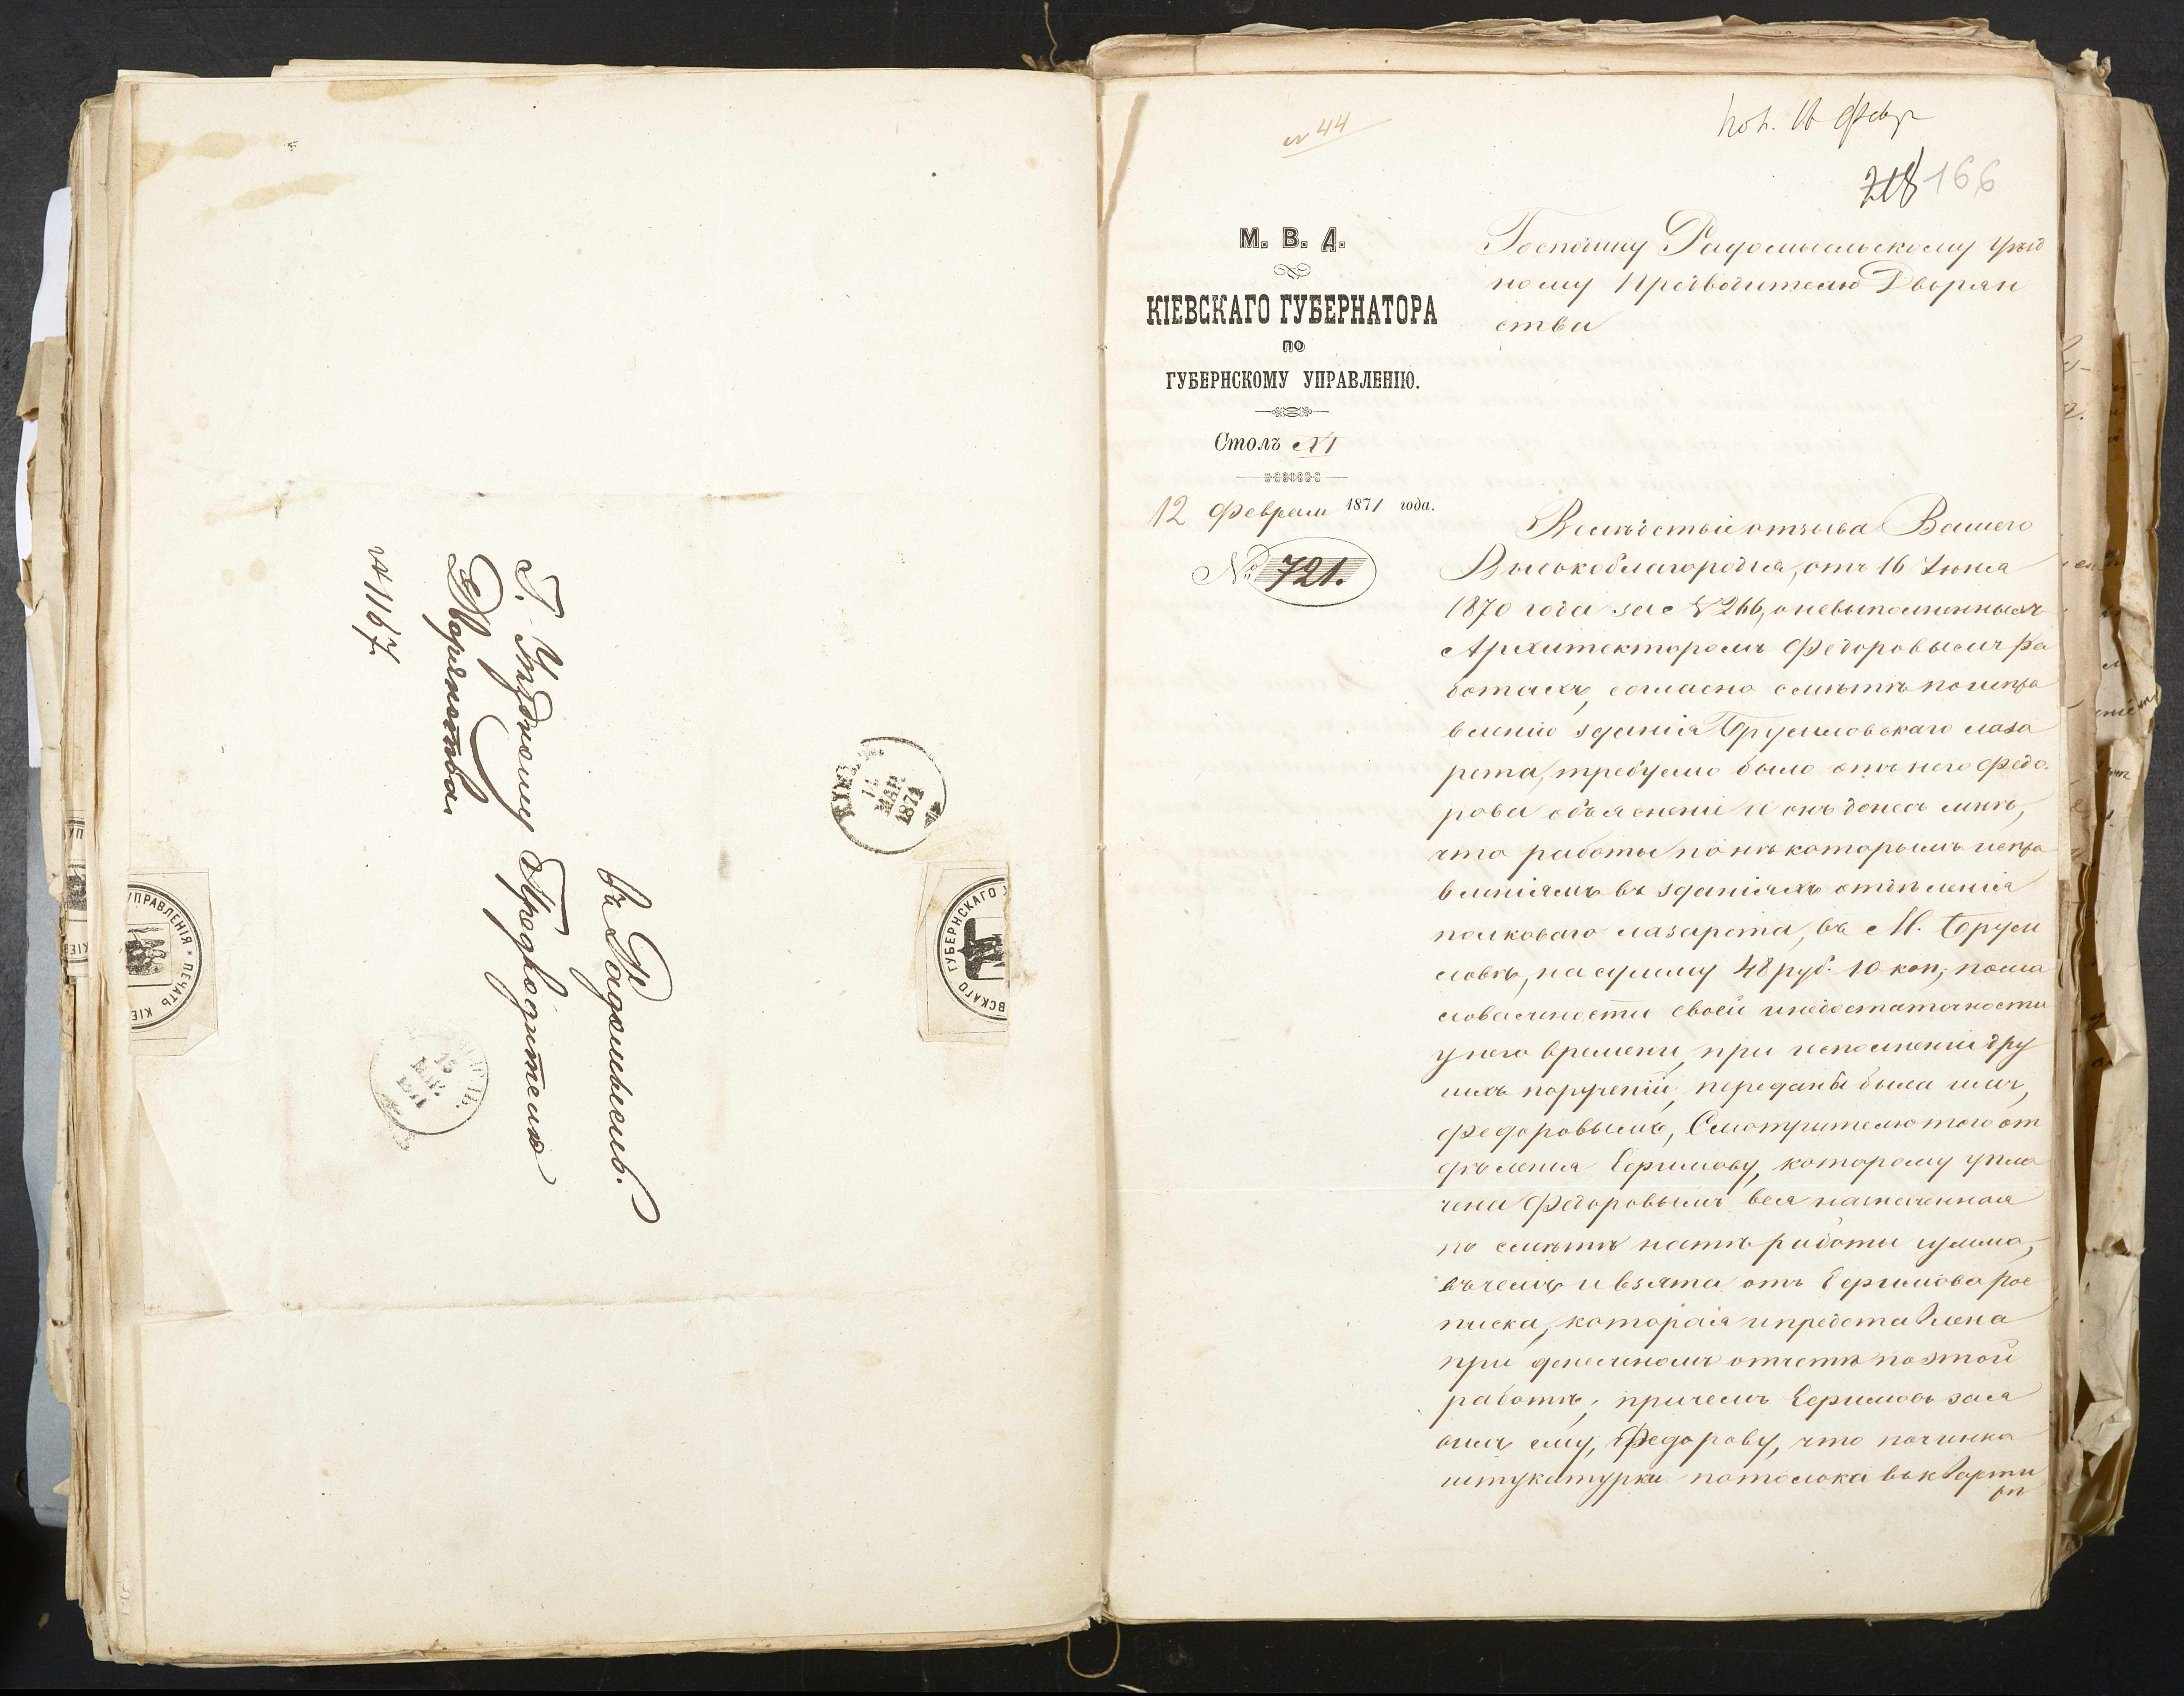 Г. Уѣздному Предводителю
Дворянства.
№ 1167
въ Радомыслѣ.
КІЕВЪ
МАР.
1871
13
МАР.
УПРАВЛЕНІЯ * ПЕЧАТЬ КІЕ
ВСКАГО ГУБЕРНСКАГО
№ 44
Пол. 16 февр
218 166
М. В. Д.
КІЕВСКАГО ГУБЕРНАТОРА
ПО
ГУБЕРНСКОМУ УПРАВЛЕНІЮ.
Столъ №1
12 Февраля 1871 года.
№ 721.
Господину Радомысльскому Уѣзд
ному Предводителю Дворян
ства
Вслѣдствіе отзыва Вашего
Высокоблагородія, отъ 16 Іюня
1870 года за № 266, о невыполненныхъ
Архитекторомъ Федоровымъ ра
ботахъ, согласно смѣтѣ по испра
вленію зданія Брусиловскаго лаза
рета, требуемо было отъ него Федо
рова объясненіе и онъ донесъ мнѣ,
что работы по нѣкоторымъ испра
вленіямъ въ зданіяхъ отдѣленія
полковаго лазарета, въ М. Бруси
ловѣ, на сумму 48 руб. 10 коп, по ма
ловажности своей и недостаточности
у него времени, при исполненіи дру
гихъ порученій, переданы были имъ,
Федоровымъ, Смотрителю того от
дѣленія Ефимову, которому упла
чена Федоровымъ вся назначенная
по смѣтѣ на тѣ работы сумма,
въ чемъ и взята отъ Ефимова рос
писка, которая и представлена
при денежномъ отчетѣ по этой
работѣ; причемъ Ефимовъ зая
вилъ ему, Федорову, что починка
штукатурки потолока въ кварти
рѣ